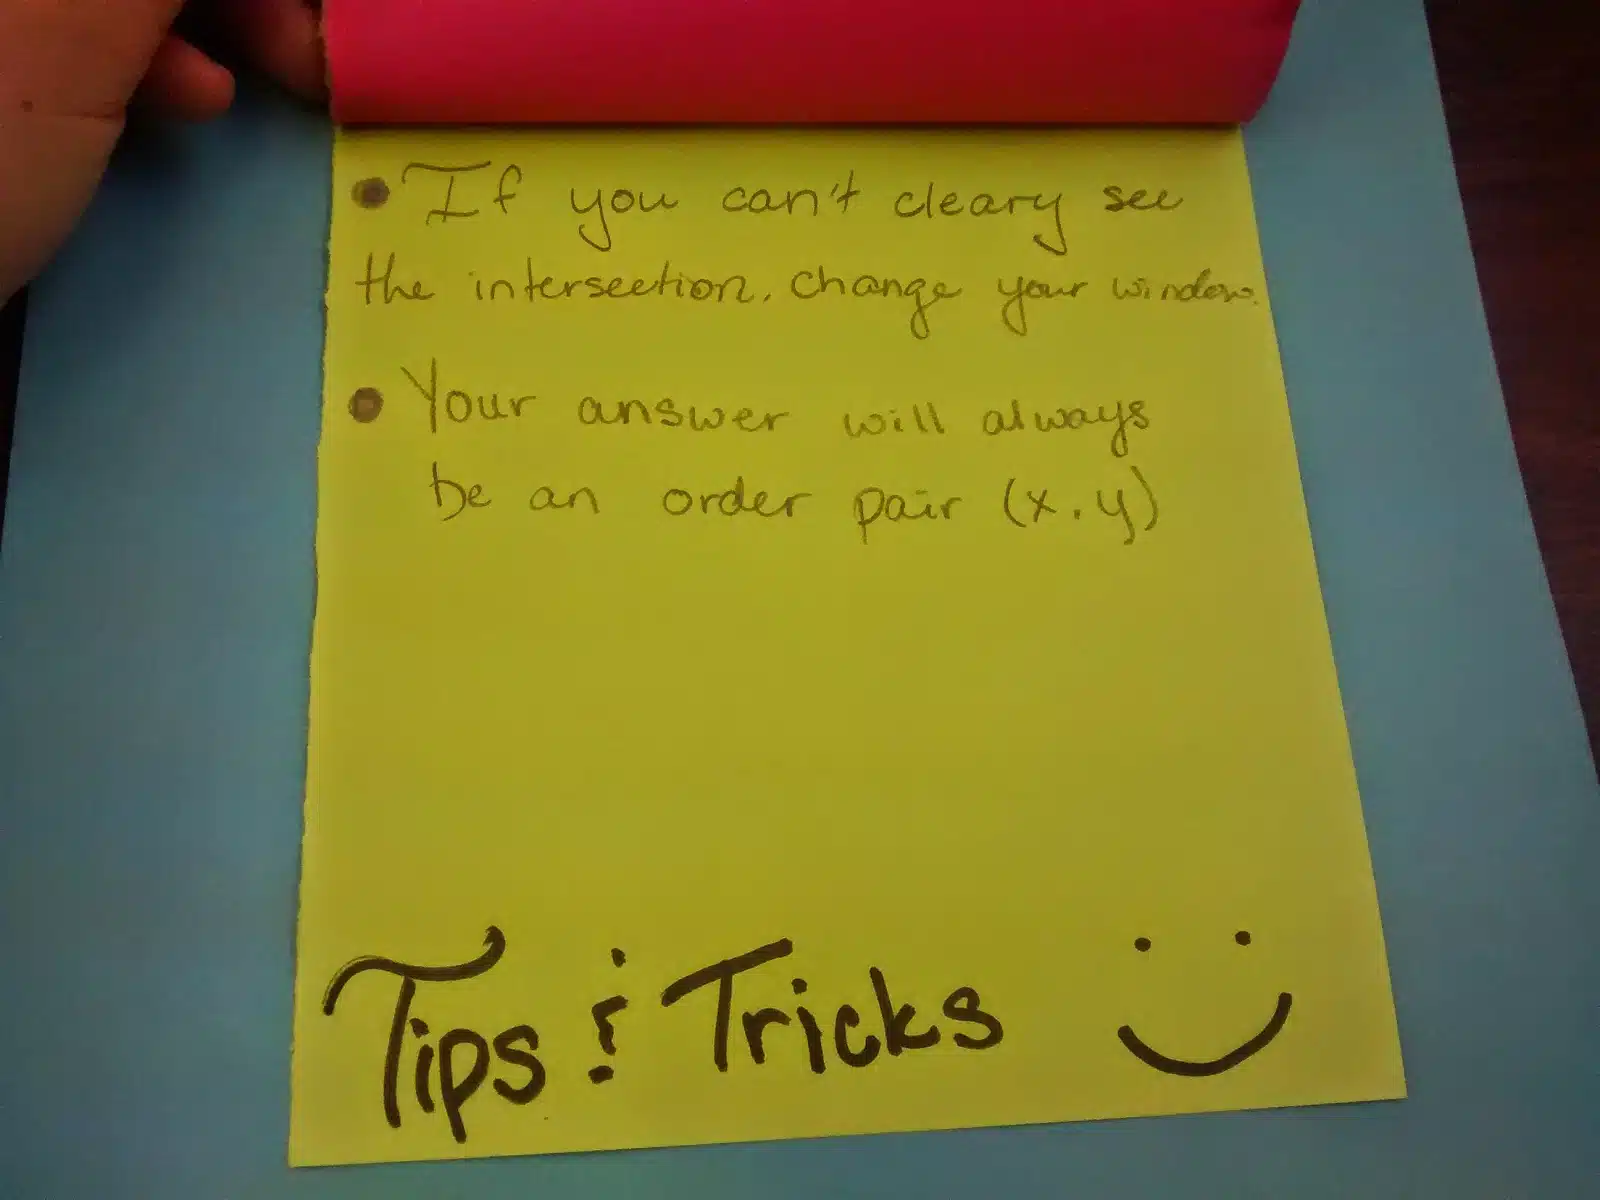 • If you can't cleary see
the intersection. change your window.
• Your answer will always
be an order pair (x,y)
Tips & Tricks